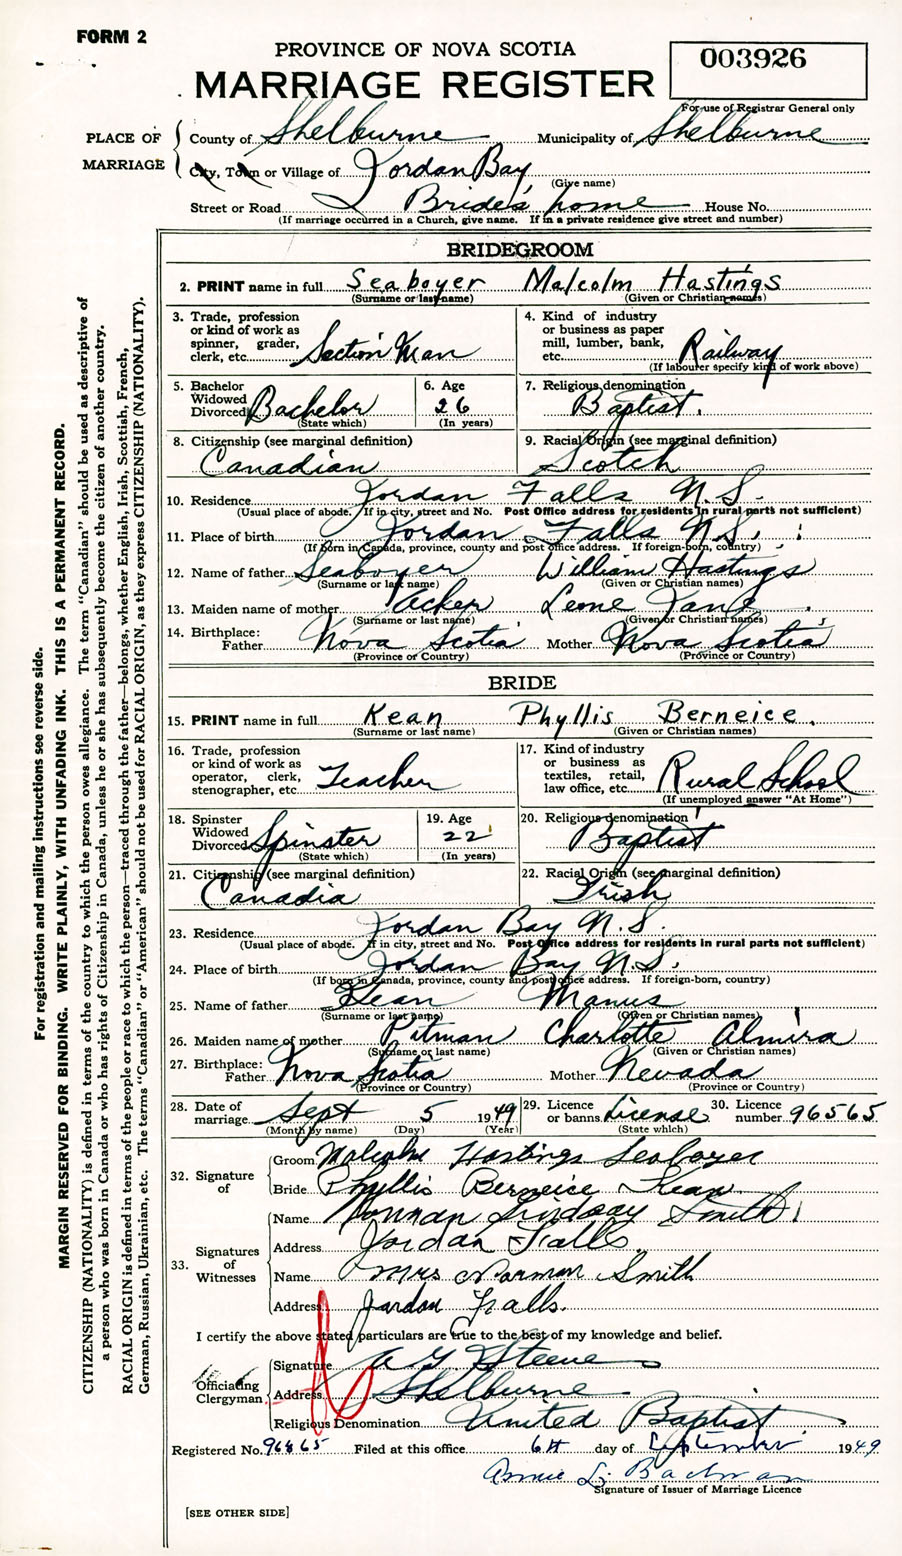 FORM 2
PROVINCE OF NOVA SCOTIA
MARRIAGE REGISTER
003926
For use of Registrar General only
PLACE OF MARRIAGE
County of Shelburne Municipality of Shelburne
City, Town or Village of Jordan Bay
(Give name)
Street or Road Bride's home House No.
(If marriage occurred in a Church, give name. If in a private residence give street and number)
BRIDEGROOM
2. PRINT name in full Seaboyer Malcolm Hastings
(Surname or last name) (Given or Christian names)
3. Trade, profession or kind of work as spinner, grader, clerk, etc. Section Man
4. Kind of industry or business as paper mill, lumber, bank, etc. Railway
(If labourer specify kind of work above)
5. Bachelor Widowed Divorced Bachelor
(State which)
6. Age 26
(In years)
7. Religious denomination Baptist.
8. Citizenship (see marginal definition) Canadian
9. Racial Origin (see marginal definition) Scotch
10. Residence Jordan Falls N.S.
(Usual place of abode. If in city, street and No. Post Office address for residents in rural parts not sufficient)
11. Place of birth Jordan Falls N.S.
(If born in Canada, province, county and post office address. If foreign-born, country)
12. Name of father Seaboyer William Hastings
(Surname or last name) (Given or Christian names)
13. Maiden name of mother Acker Leone Jane
(Surname or last name) (Given or Christian names)
14. Birthplace: Father Nova Scotia Mother Nova Scotia
(Province or Country) (Province or Country)
BRIDE
15. PRINT name in full Kean Phyllis Berneice.
(Surname or last name) (Given or Christian names)
16. Trade, profession or kind of work as operator, clerk, stenographer, etc Teacher
17. Kind of industry or business as textiles, retail, law office, etc. Rural School
(If unemployed answer "At Home")
18. Spinster Widowed Divorced Spinster
(State which)
19. Age 22
(In years)
20. Religious denomination Baptist
21. Citizenship (see marginal definition) Canadia
22. Racial Origin (see marginal definition) Irish
23. Residence Jordan Bay N.S.
(Usual place of abode. If in city, street and No. Post Office address for residents in rural parts not sufficient)
24. Place of birth Jordan Bay N.S.
(If born in Canada, province, county and post office address. If foreign-born, country)
25. Name of father Kean Manus
(Surname or last name) (Given or Christian names)
26. Maiden name of mother Pitman Charlotte Almira
(Surname or last name) (Given or Christian names)
27. Birthplace: Father Nova Scotia Mother Nevada
(Province or Country) (Province or Country)
28. Date of marriage Sept 5 1949
(Month by name) (Day) (Year)
29. Licence or banns License
(State which)
30. Licence number 96565
32. Signature of
Groom Malcolm Hastings Seaboyer
Bride Phyllis Berneice Kean
33. Signatures of Witnesses
Name Norman Lindsay Smith
Address Jordan Falls
Name Mrs Norman Smith
Address Jordan Falls.
I certify the above stated particulars are true to the best of my knowledge and belief.
Officiating Clergyman
Signature A G Steene
Address Shelburne
Religious Denomination United Baptist
Registered No. 96865 Filed at this office 6th day of September 1949
Annie L. Bachman
Signature of Issuer of Marriage Licence
[SEE OTHER SIDE]
For registration and mailing instructions see reverse side.
MARGIN RESERVED FOR BINDING. WRITE PLAINLY, WITH UNFADING INK. THIS IS A PERMANENT RECORD.
CITIZENSHIP (NATIONALITY) is defined in terms of the country to which the person owes allegiance. The term "Canadian" should be used as descriptive of
a person who was born in Canada or who has rights of Citizenship in Canada, unless he or she has subsequently become the citizen of another country.
RACIAL ORIGIN is defined in terms of the people or race to which the person—traced through the father—belongs, whether English, Irish, Scottish, French,
German, Russian, Ukrainian, etc. The terms "Canadian" or "American" should not be used for RACIAL ORIGIN, as they express CITIZENSHIP (NATIONALITY).